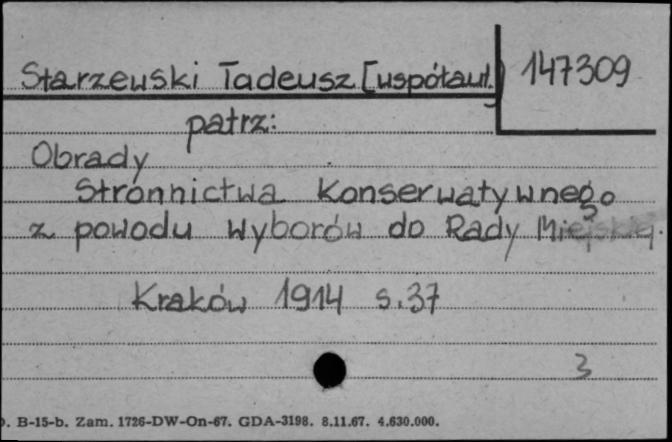 Starzewski Tadeusz [współaut.]
147309
patrz:
Obrady
Stronnictwa Konserwatywnego
z powodu Wyborów do Rady Miejskiej.
Kraków 1914 s.37
3
D. B-15-b. Zam. 1726-DW-On-67. GDA-3198. 8.11.67. 4.630.000.